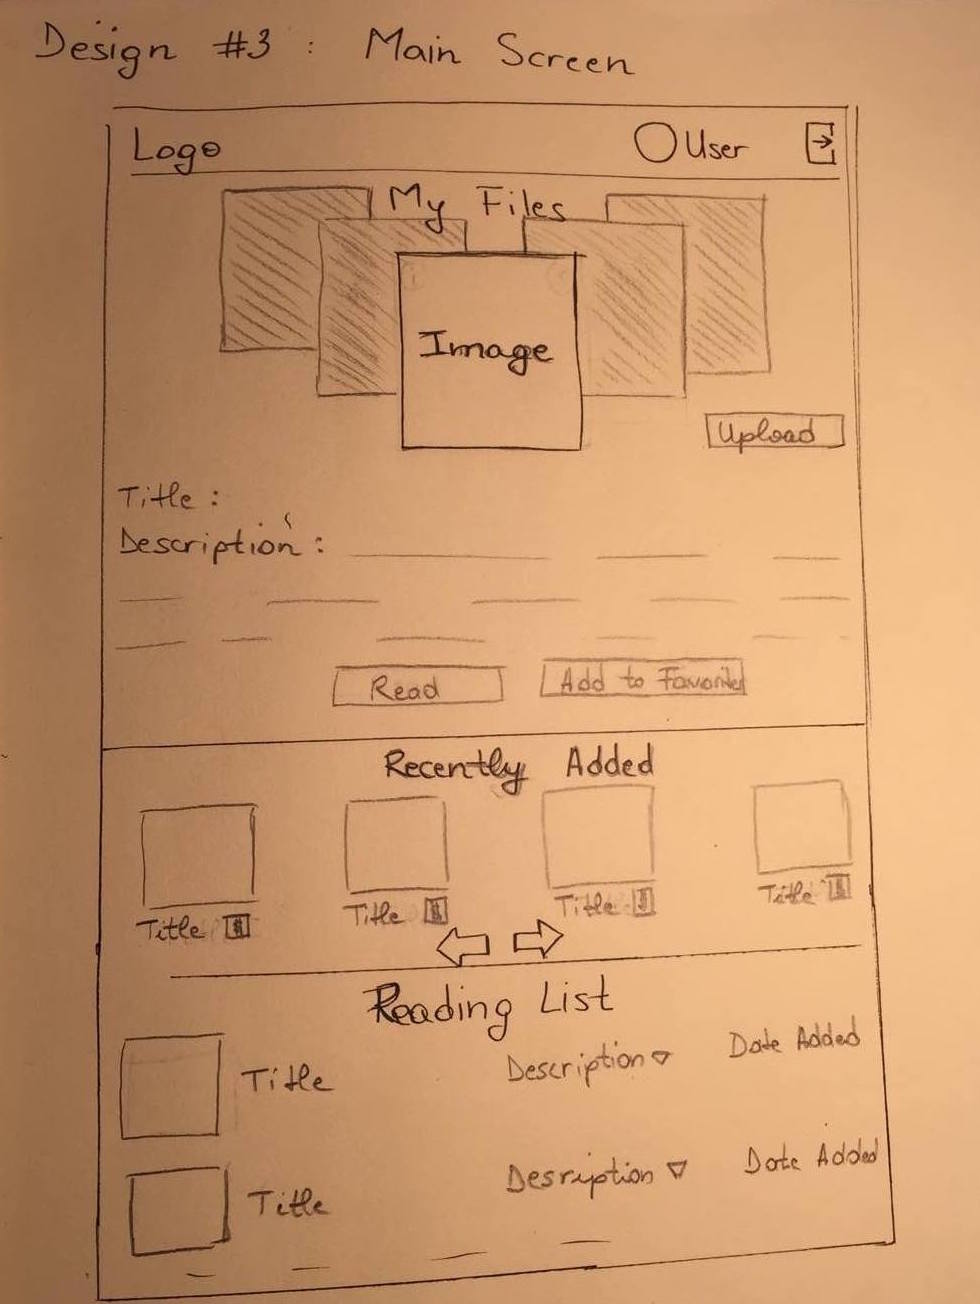 Design #3 : Main Screen
Logo
User
My Files
Image
Upload
Title :
Description :
Read
Add to Favorites
Recently Added
Title
Title
Title
Title
Reading List
Title
Description
Date Added
Title
Desription
Date Added